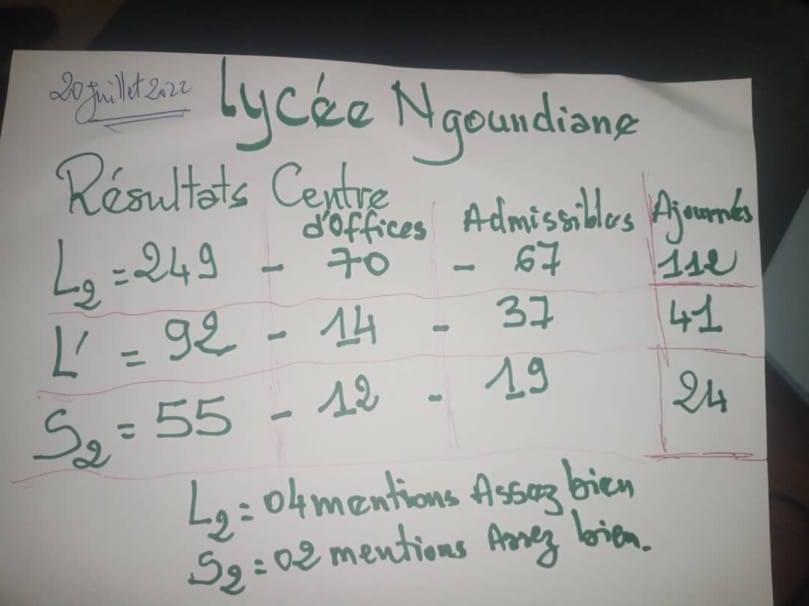 20 juillet 2022
Lycée Ngoundiane
Résultats Centre
d'offices Admissibles Ajournés
L2 = 249 - 70 - 67 112
L' = 92 - 14 - 37 41
S2 = 55 - 12 - 19 24
L2 = 04 mentions Assez bien
S2 = 02 mentions Assez bien.